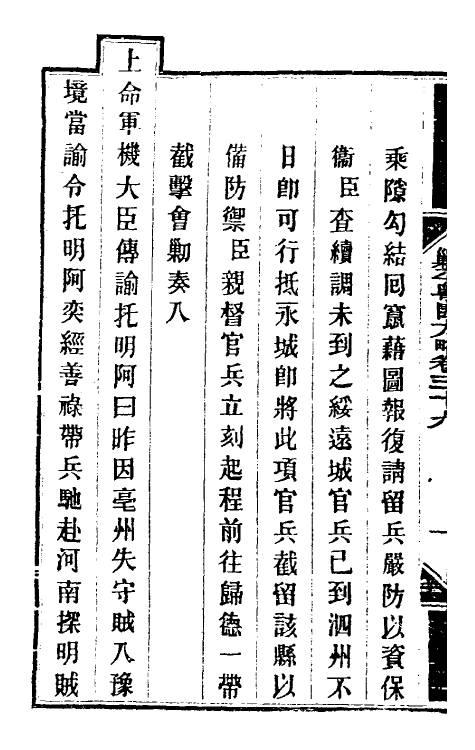 乘隙勾結回竄藉圖報復請留兵嚴防以資保
衞臣查續調未到之綏遠城官兵已到泗州不
日卽可行抵永城卽將此項官兵截留該縣以
備防禦臣親督官兵立刻起程前往歸德一帶
截擊會勦奏入
上命軍機大臣傳諭托明阿曰昨因亳州失守賊入豫
境當諭令托明阿奕經善祿帶兵馳赴河南探明賊